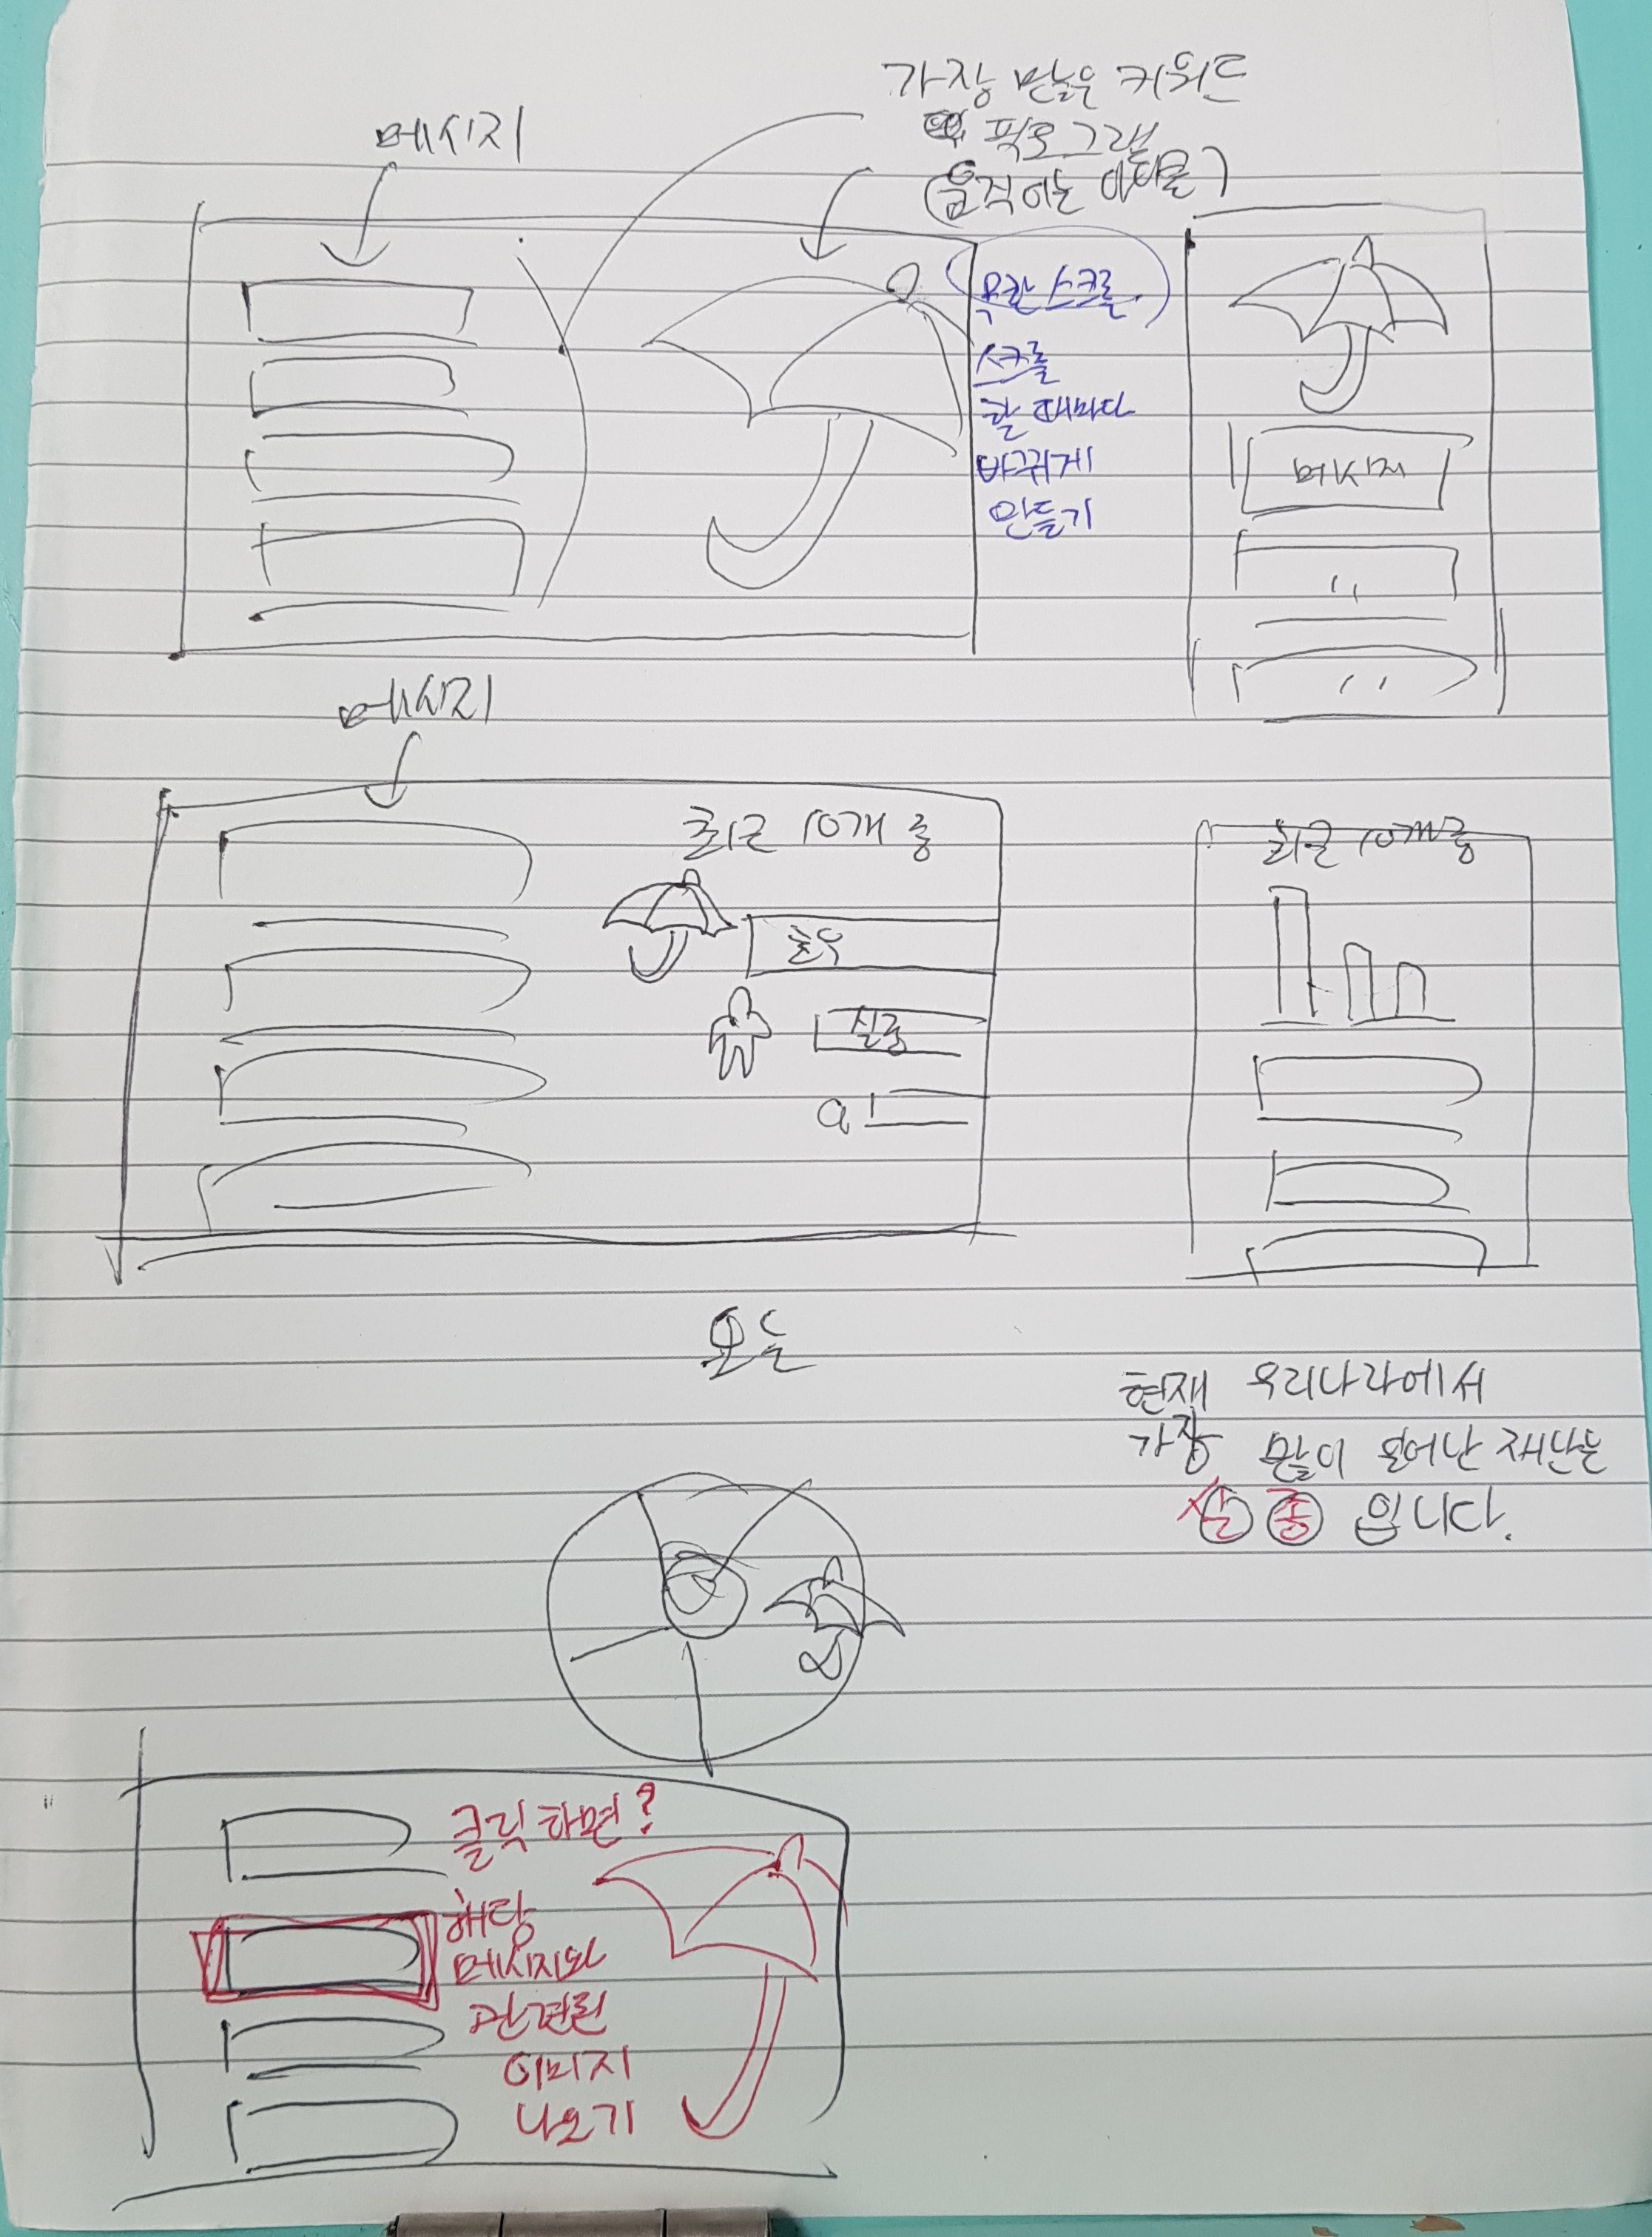 메시지
가장 많은 키워드
픽토그램
(움직이는 이모티콘?)
무한 스크롤
스크롤
할 때마다
바뀌게
만들기
메시지
메시지
최근 10개 중
호우
실종
최근 10개 중
오늘
현재 우리나라에서
가장 많이 일어난 재난은
실종 입니다.
클릭하면?
해당
메시지와
관련된
이미지
나오기